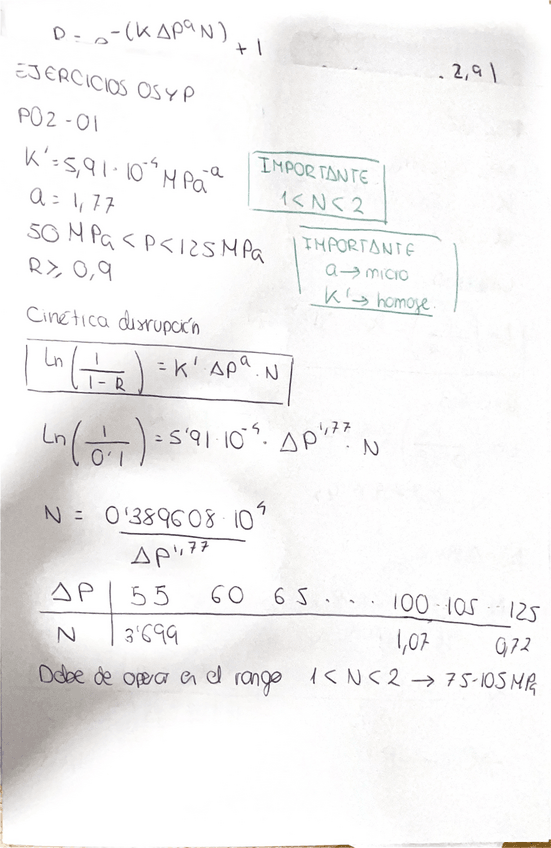 R = e^-(K ΔP^a N) + 1
2,91
EJERCICIOS OSYP
PO2-01
K' = 5,91·10^-4 MPa^-a
a = 1,77
50 MPa < P < 125 MPa
R ≥ 0,9
IMPORTANTE
1 < N < 2
IMPORTANTE
a → micro
K' → homoge.
Cinética disrupción
Ln(1/(1-R)) = K' ΔP^a · N
Ln(1/0'1) = 5'91·10^-4 · ΔP^1,77 · N
N = 0'389608·10^4 / ΔP^1,77
ΔP | 55 60 65 ... 100 · 105 ·· 125
N | 3'699 1,07 0,72
Debe de operar en el rango 1 < N < 2 → 75-105 MPa